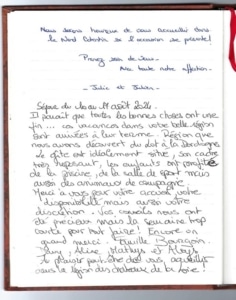 Nous serions heureux de vous accueillir dans
le Nord Cotentin si l'occasion se présente!
Prenez soin de vous.
Avec toute notre affection.
- Julie et Julien -
Séjour du au 17 août 2024.
Il paraît que toutes les bonnes choses ont une
fin... nos vacances dans votre belle région
sont arrivées à leur terme. Région que
nous avons découvert du lot à la Dordogne.
Le gîte est idéalement situé, son cadre
très reposant, les enfants ont profité
de la piscine, de la salle de sport mais
aussi des animaux de compagnie.
Merci à vous pour votre accueil votre
disponibilité mais aussi votre
discrétion. Vos conseils nous ont
été précieux mais la semaine trop
courte pour tout faire! Encore un
grand merci. Famille
Aline, Mathys et
Au plaisir peut-être chez vous,
dans la région des châteaux de la Loire!